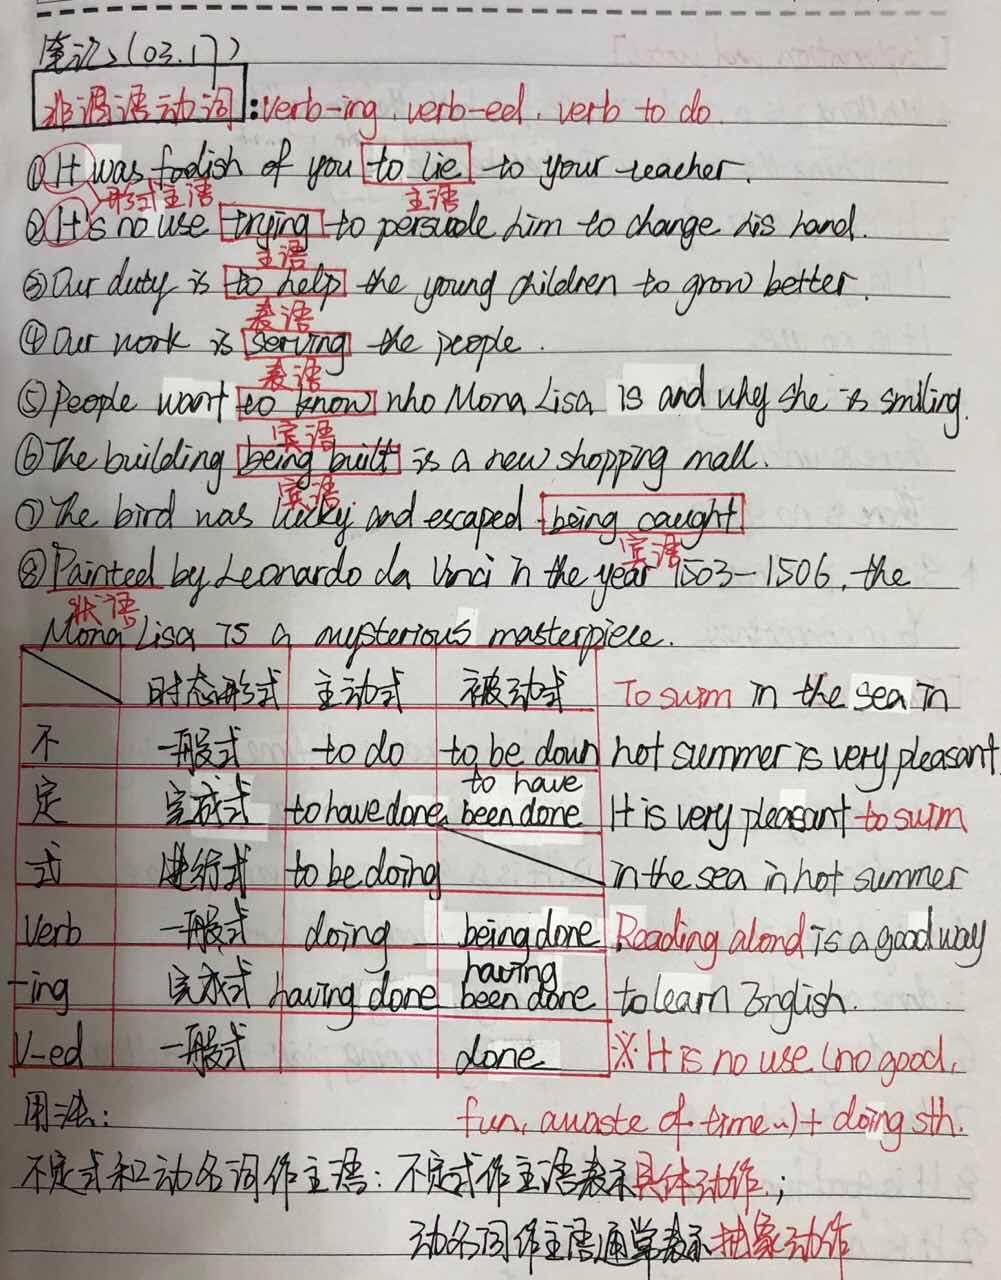 笔记(03.17)
非谓语动词:verb-ing. verb-ed. verb to do.
①It was foolish of you to lie to your teacher.
形式主语 主语
②It's no use trying to persuade him to change his hand.
主语
③Our duty is to help the young children to grow better.
表语
④Our work is serving the people.
表语
⑤People want to know who Mona Lisa is and why she is smiling.
宾语
⑥The building being built is a new shopping mall.
宾语
⑦The bird was lucky and escaped being caught
宾语
⑧Painted by Leonardo da Vinci in the year 1503-1506, the
状语
Mona Lisa is a mysterious masterpiece.
时态形式 主动式 被动式 To swim in the sea in
不 一般式 to do to be doun hot summer is very pleasant.
定 完成式 to have done to have been done It is very pleasant to swim
式 进行式 to be doing in the sea in hot summer
Verb 一般式 doing being done Reading alond is a good way
-ing 完成式 having done having been done to learn English.
V-ed 一般式 done ※.It is no use (no good,
用法: fun, awaste of time..)+ doing sth.
不定式和动名词作主语:不定式作主语表示具体动作;
动名词作主语通常表示抽象动作